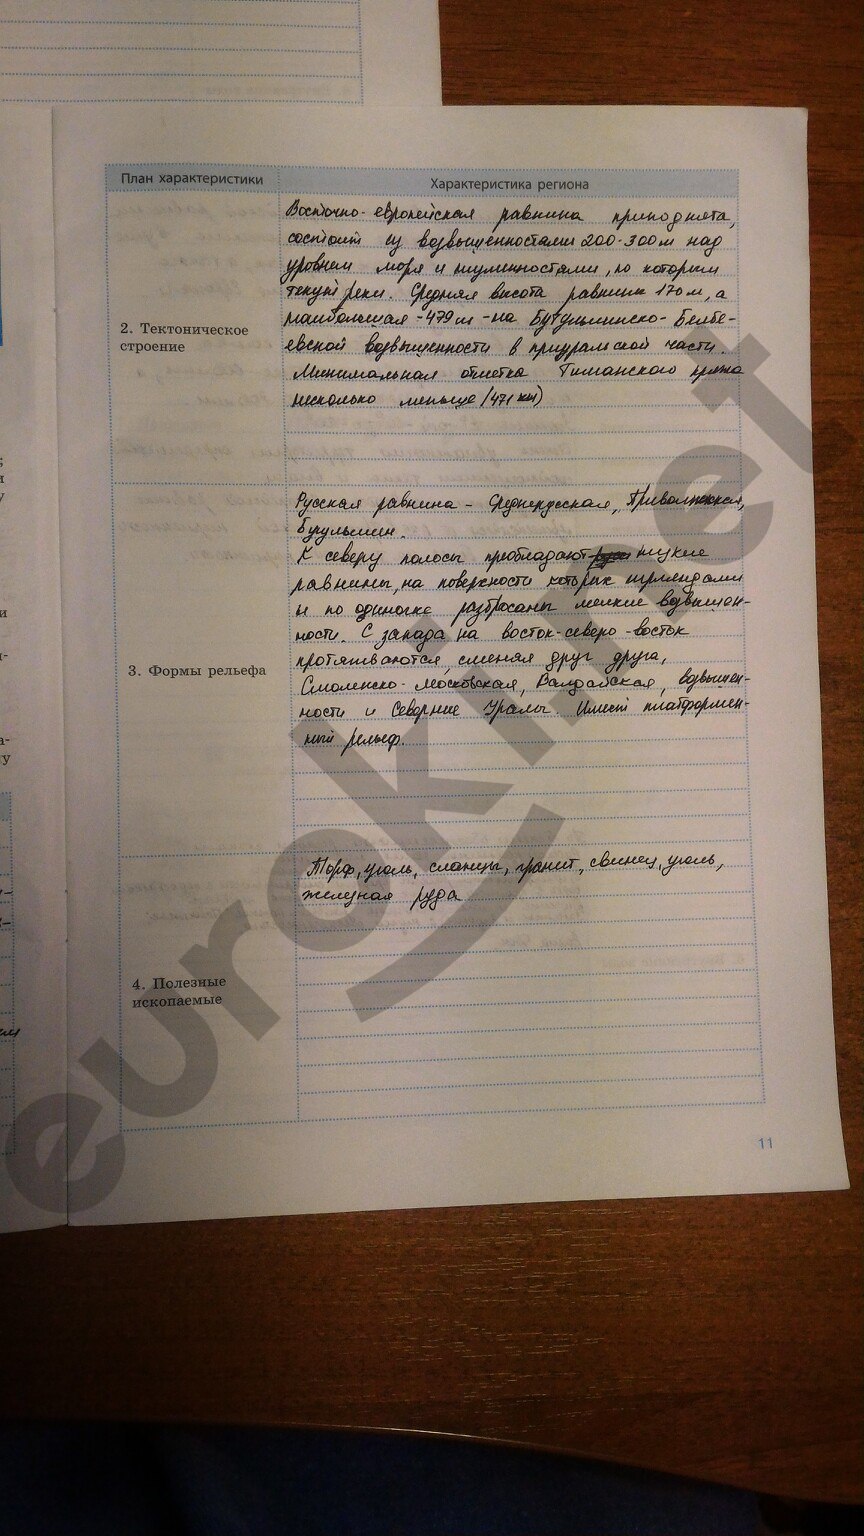 План характеристики
Характеристика региона
2. Тектоническое
строение
Восточно-европейская равнина приподнята,
состоит из возвышенностями 200-300м над
уровнем моря и низменностями, по которым
текут реки. Средняя высота равнин 170м, а
наибольшая -479м -на Бугульминско-Белебе-
евской возвышенности в приуральской части.
Минимальная отметка Тиманского кряжа
несколько меньше (471 км)
3. Формы рельефа
Русская равнина - Среднерусская, Приволжская,
Бугульмин.
К северу полосы преобладают низкие
равнины, на поверхности которых гирляндами
и по одиночке разбросаны мелкие возвышен-
ности. С запада на восток-северо-восток
протягиваются, сменяя друг друга,
Смоленско-Московская, Валдайская, возвышен-
ности и Северные Увалы. Имеет платформен-
ный рельеф.
4. Полезные
ископаемые
Торф, уголь, сланцы, гранит, свинец, уголь,
железная руда
11
eurokinet